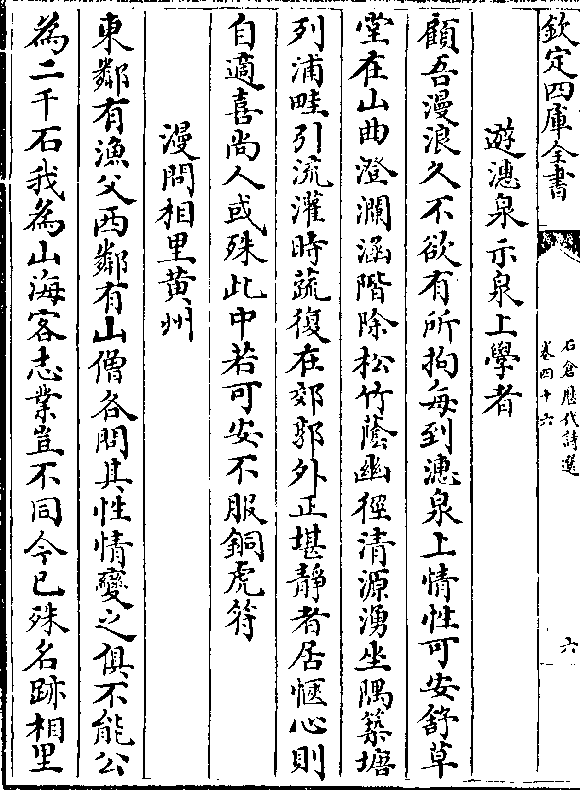 欽定四庫全書
石倉歷代詩選
卷四十六
六
遊漶泉示泉上學者
顧吾漫浪久不欲有所拘每到漶泉上情性可安舒草
堂在山曲澄瀾涵階除松竹蔭幽徑清源湧坐隅築塘
列浦畦引流灌時蔬復在郊郭外正堪靜者居愜心則
自適喜尚人或殊此中若可安不服銅虎符
漫問相里黄州
東鄰有漁父西鄰有山僧各問其性情變之俱不能公
為二千石我為山海客志業豈不同今已殊名跡相里